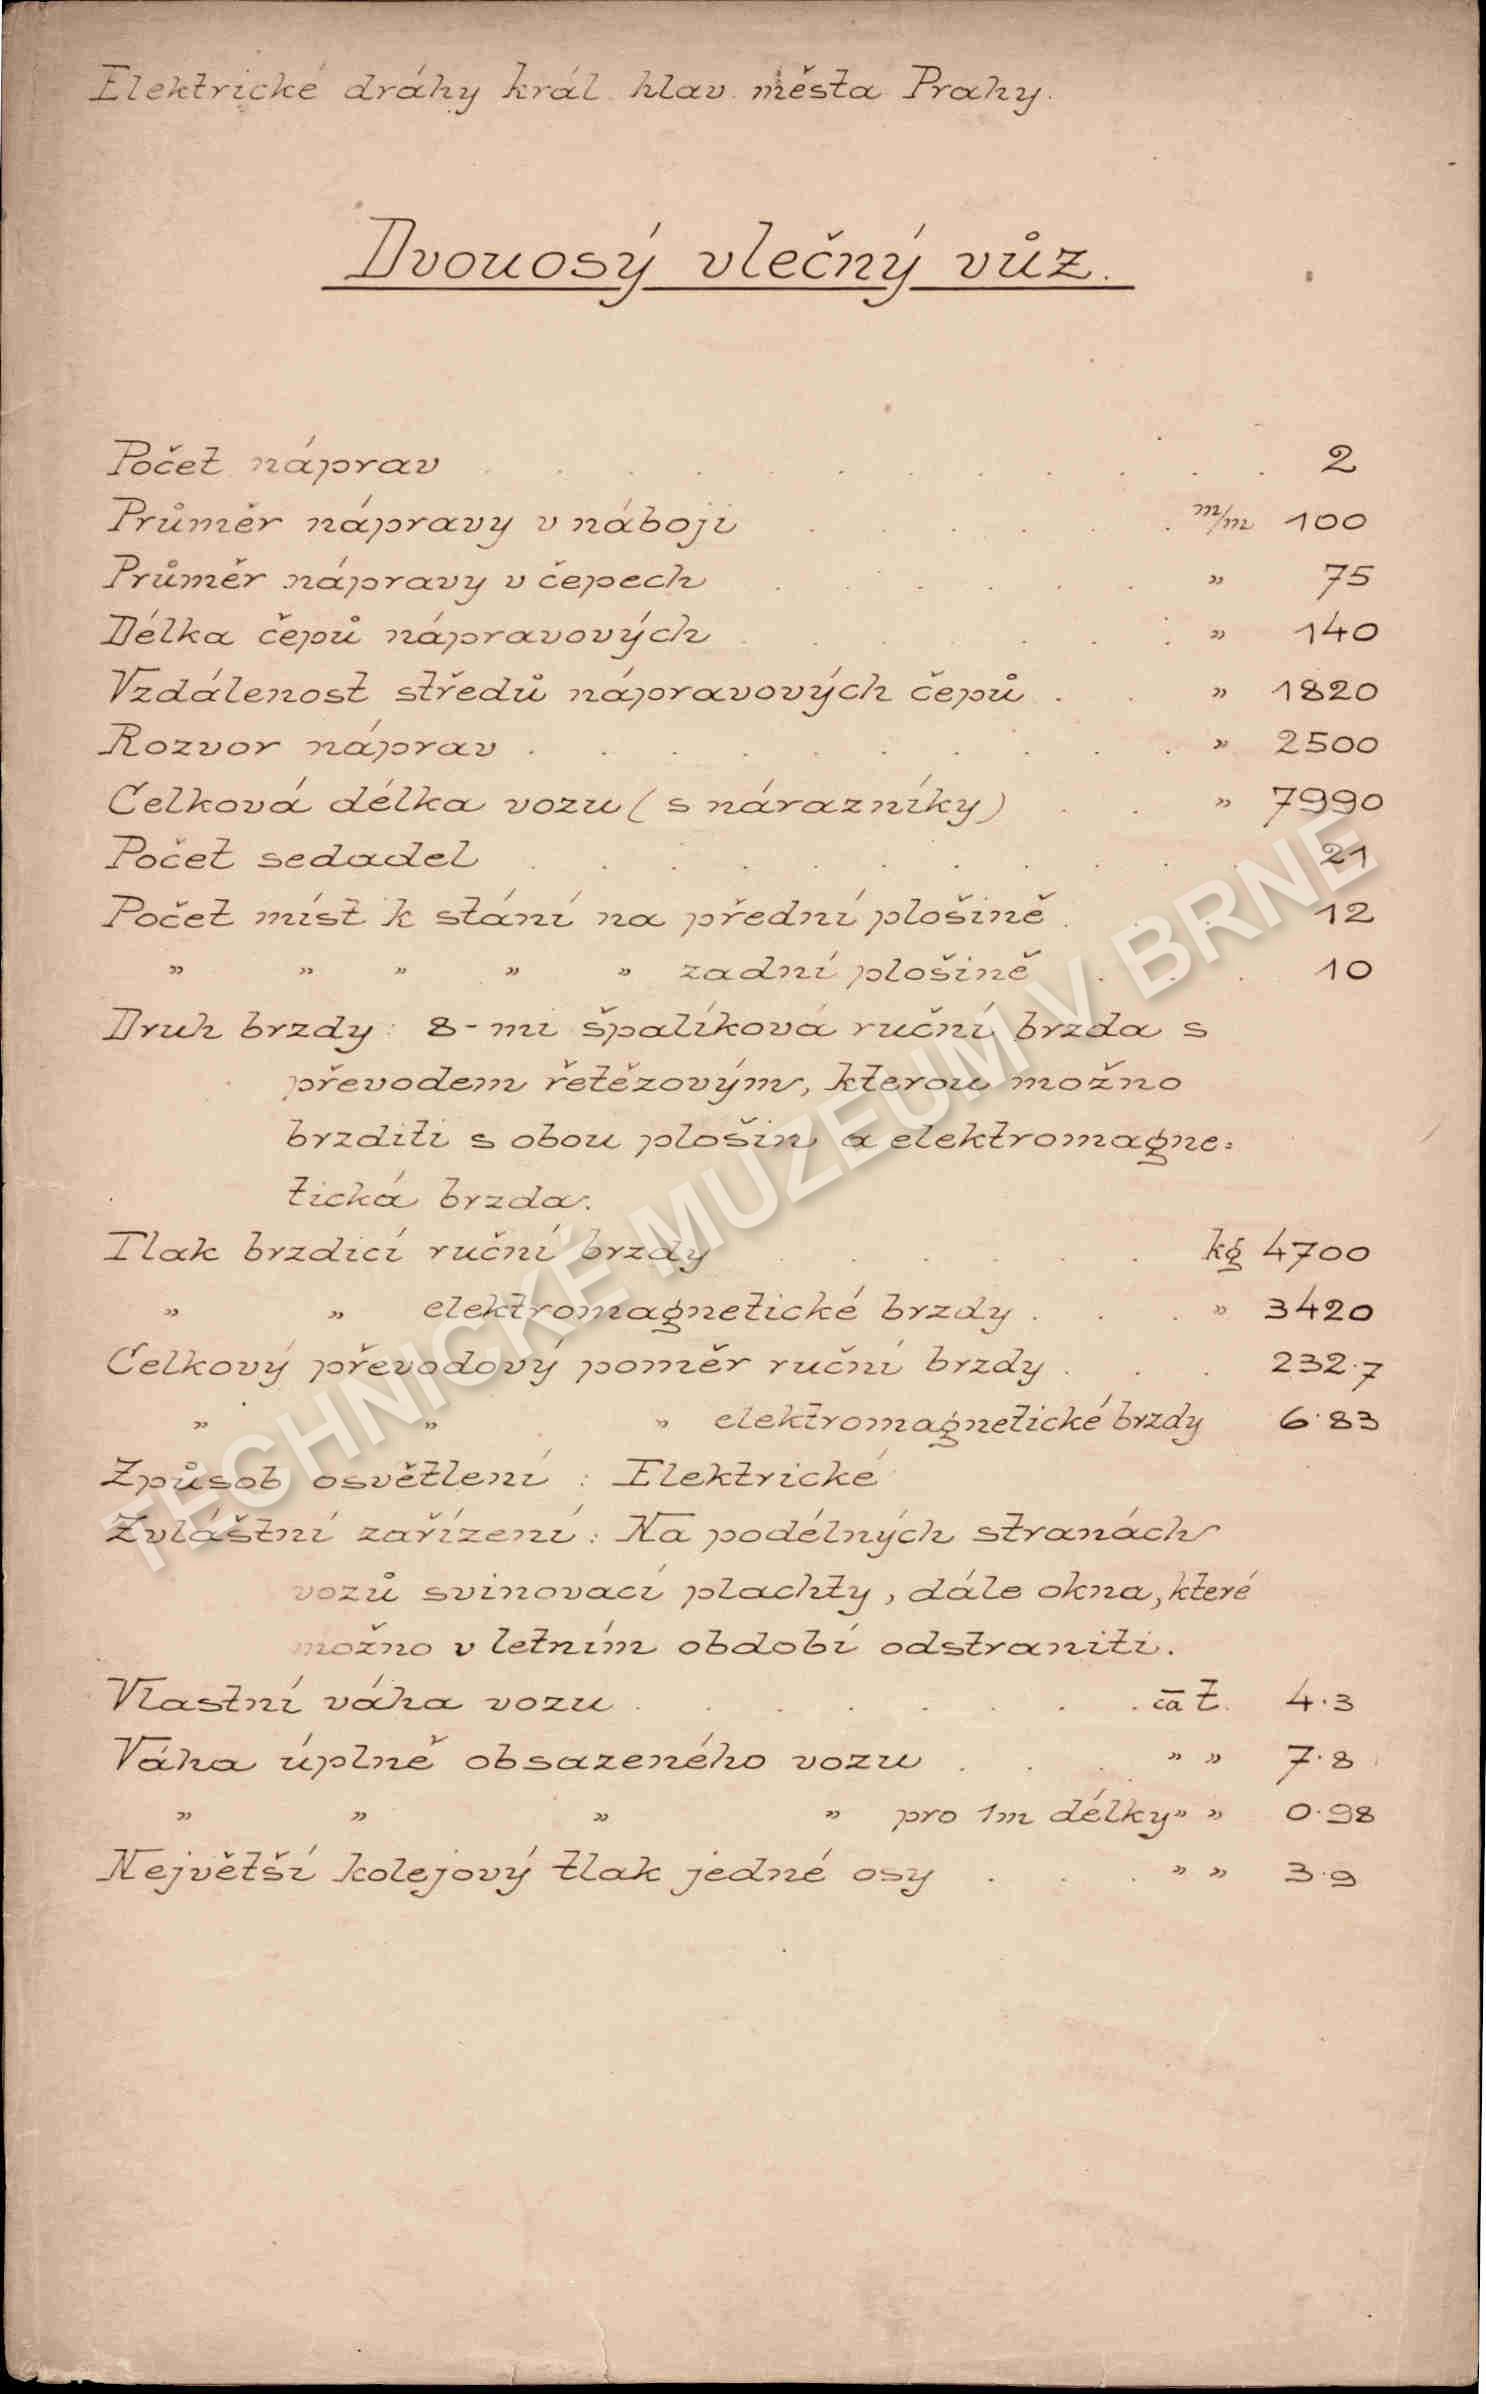 Elektrické dráhy král. hlav. města Prahy.
Dvouosý vlečný vůz.
Počet náprav . . . . . . . . . . . 2
Průměr nápravy v náboji . . . . . . m/m 100
Průměr nápravy v čepech . . . . . . " 75
Délka čepů nápravových . . . . . . . " 140
Vzdálenost středů nápravových čepů . . " 1820
Rozvor náprav . . . . . . . . . . " 2500
Celková délka vozu (s nárazníky) . . " 7990
Počet sedadel . . . . . . . . . . . 21
Počet míst k stání na přední plošině . . . 12
" " " " " zadní plošině . . . 10
Druh brzdy: 8-mi špalíková ruční brzda s
převodem řetězovým, kterou možno
brzditi s obou plošin a elektromagne=
tická brzda.
Tlak brzdicí ruční brzdy . . . . . . kg 4700
" " elektromagnetické brzdy . . . " 3420
Celkový převodový poměr ruční brzdy . . . 232·7
" " " elektromagnetické brzdy 6·83
Způsob osvětlení : Elektrické
Zvláštní zařízení : Na podélných stranách
vozů svinovací plachty, dále okna, které
možno v letním období odstraniti.
Vlastní váha vozu . . . . . . . . ca t. 4·3
Váha úplně obsazeného vozu . . . " " 7·8
" " " " pro 1m délky " " 0·98
Největší kolejový tlak jedné osy . . . " " 3·9
TECHNICKÉ MUZEUM V BRNĚ